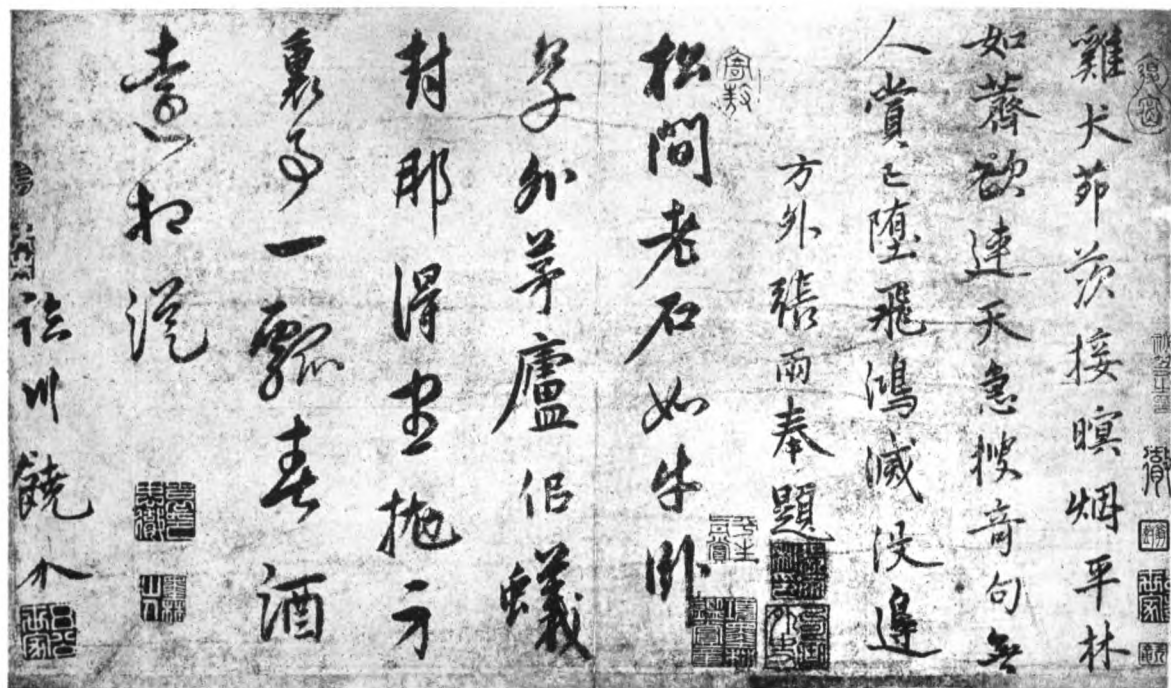 雞犬茆茨接暝烟平林
如薺欲連天急搜奇句無
人賞已墮飛鴻滅沒邊
方外張雨奉題
松間老石如牛卧
草外茅廬佀蟻
封那得盡抛方
裏事一瓢春酒
遠相從
臨川饒介